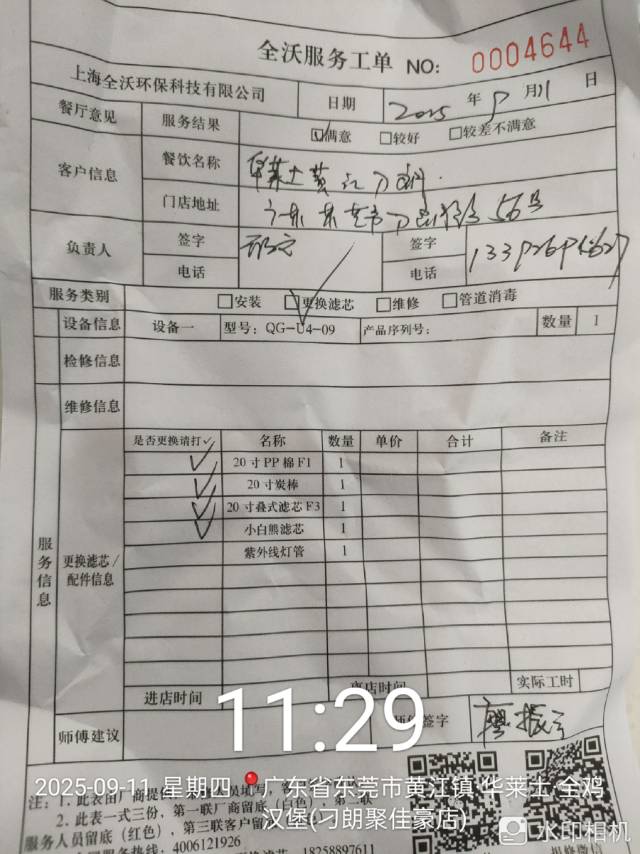 全沃服务工单 NO: 0004644
上海全沃环保科技有限公司 日期 2025 年 9 月 11 日
餐厅意见 服务结果 ☑满意 □较好 □较差不满意
客户信息 餐饮名称 华莱士黄江刁朗
门店地址 广东东莞市刁朗 56号
负责人 签字 签字
电话 电话
服务类别 □安装 ☑更换滤芯 □维修 □管道消毒
设备信息 设备一 型号: QG-U4-09 产品序列号: 数量 1
检修信息
维修信息
是否更换请打✓ 名称 数量 单价 合计 备注
✓ 20寸PP棉F1 1
✓ 20寸炭棒 1
✓ 20寸叠式滤芯F3 1
✓ 小白熊滤芯 1
紫外线灯管 1
服务信息
更换滤芯/
配件信息
进店时间 离店时间 实际工时
11:29
师傅建议 师傅签字 廖振
2025-09-11 星期四 广东省东莞市黄江镇·华莱士·全鸡
汉堡(刁朗聚佳豪店)
注: 1. 此表由厂商提供
2. 此表一式三份, 第一联厂商留底(白色), 第二联
服务人员留底(红色), 第三联客户留
服务热线: 4006121926 18258897611
报修微信
水印相机